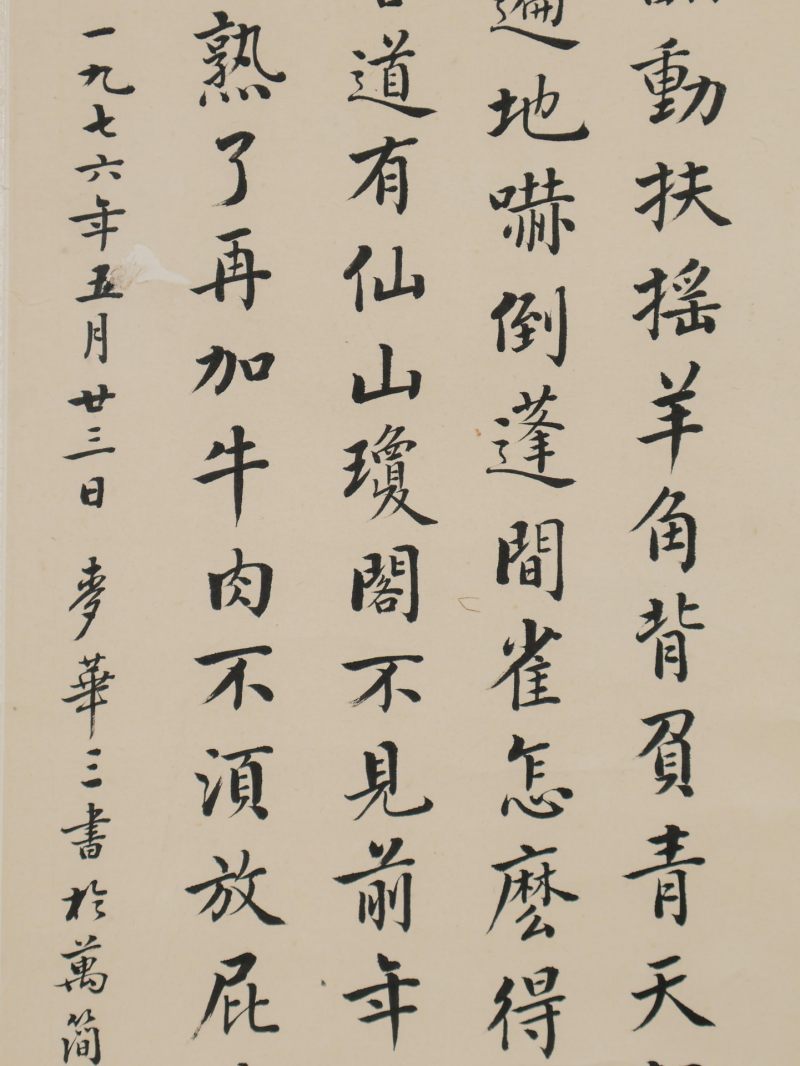 動扶摇羊角背負青天
遍地嚇倒蓬間雀怎麽得
道有仙山瓊閣不見前年
熟了再加牛肉不須放屁
一九七六年五月廿三日 麥華三書於萬簡